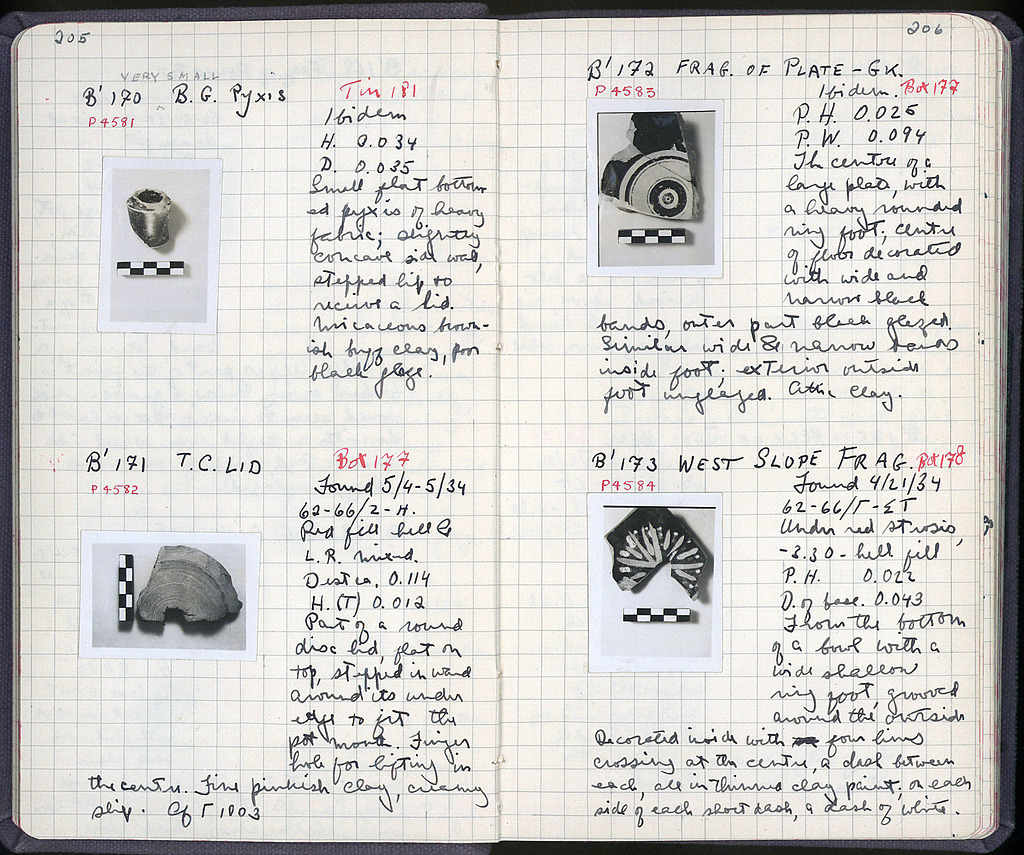 205
VERY SMALL
B' 170 B.G. Pyxis Tin 181
P 4581
Ibidem
H. 0.034
D. 0.035
Small flat bottom-
ed pyxis of heavy
fabric; slightly
concave side wall,
stepped lip to
receive a lid.
Micaceous brown-
ish buff clay, poor
black glaze.
B' 171 T.C. LID Bot 177
P 4582
Found 5/4-5/34
62-66/Z-H.
Red fill hell &
L.R. mixed.
D est ca. 0.114
H. (T) 0.012
Part of a round
disc lid, flat on
top, stepped inward
around its under
edge to fit the
pot mouth. Finger
hole for lifting in
the centre. Fine pinkish clay, creamy
slip. Cf Γ 1003
206
B' 172 FRAG. OF PLATE - GK.
P 4583
Ibidem. Bot 177
P. H. 0.025
P. W. 0.094
Th centre of a
large plate, with
a heavy rounded
ring foot; centre
of floor decorated
with wide and
narrow black
bands, outer part black glazed.
Similar wide & narrow bands
inside foot; exterior outside
foot unglazed. Attic clay.
B' 173 WEST SLOPE FRAG. Bot 178
P 4584
Found 4/21/34
62-66/Γ-ΣΤ
Under red strosis,
-3.30 - hell fill
P. H. 0.022
D. of base. 0.043
From the bottom
of a bowl with a
wide shallow
ring foot, grooved
around the outside
Decorated inside with four lines
crossing at the centre, a dash between
each, all in thinned clay paint. on each
side of each short dash, a dash of white.